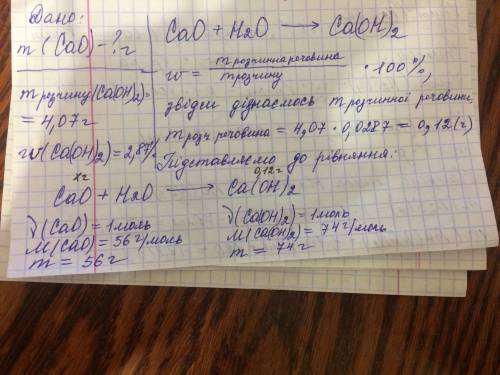 Дано:
m (CaO) - ? г
m розчину (Ca(OH)₂) =
= 4,07 г
w(Ca(OH)₂) = 2,87%
CaO + H₂O → Ca(OH)₂
w = m розчинна речовина / m розчину · 100%,
звідси дізнаємось m розчинної речовини
m розч. речовина = 4,07 · 0,0287 = 0,12 (г)
Підставляємо до рівняння:
xг 0,12г
CaO + H₂O → Ca(OH)₂
ν(CaO) = 1 моль
M(CaO) = 56 г/моль
m = 56 г
ν(Ca(OH)₂) = 1 моль
M(Ca(OH)₂) = 74 г/моль
m = 74 г